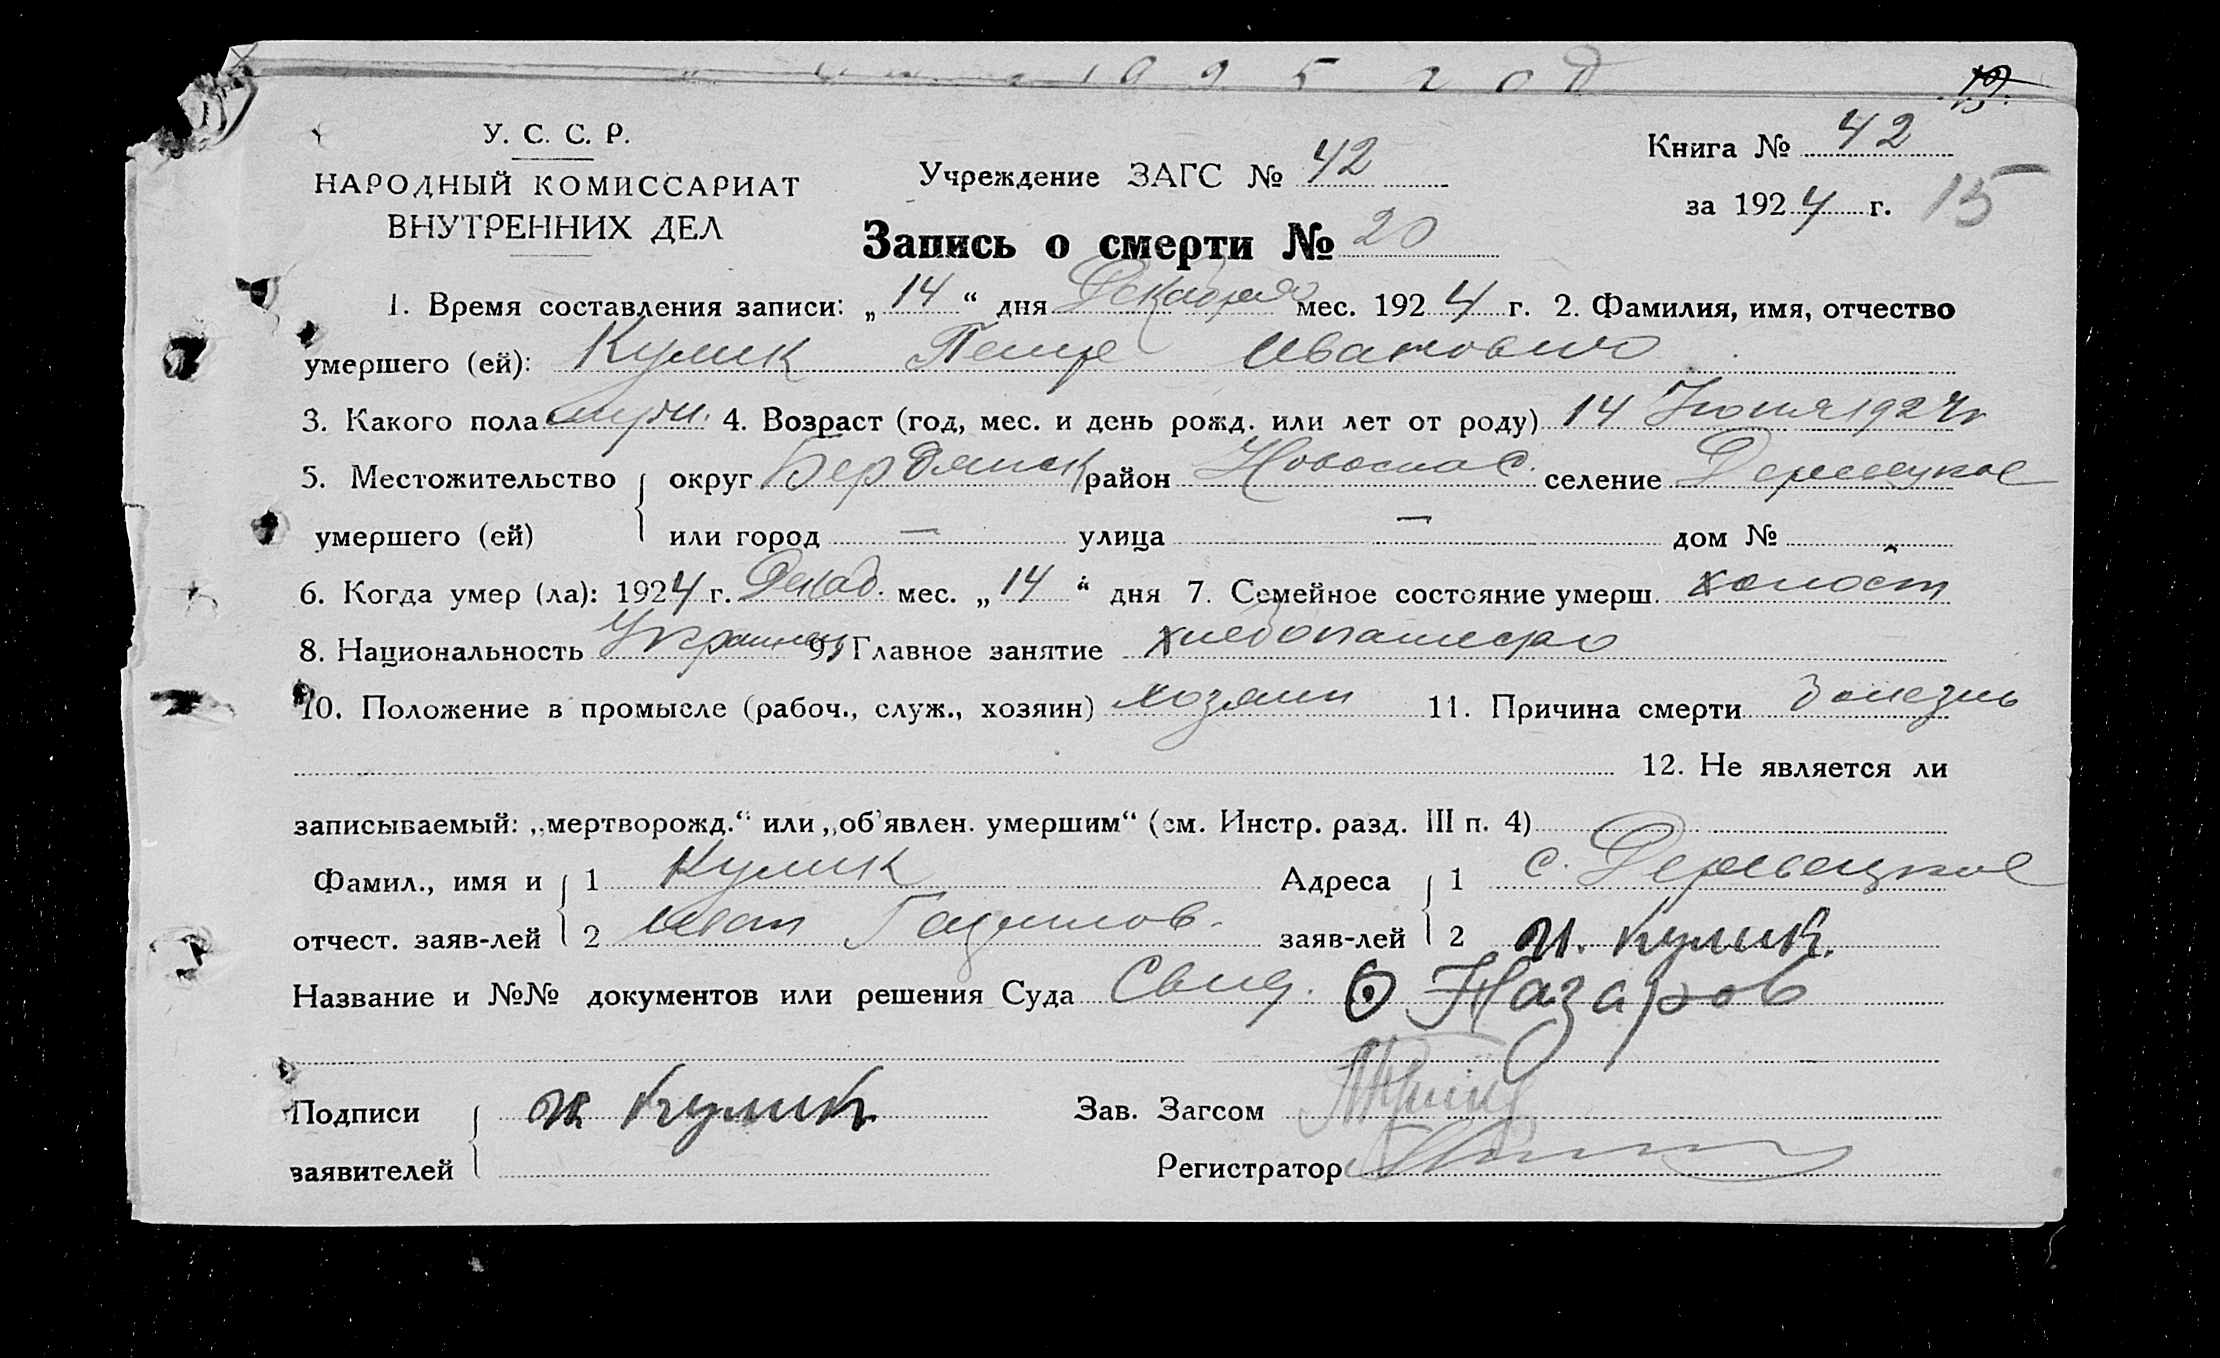 1925 год
У. С. С. Р.
НАРОДНЫЙ КОМИССАРИАТ
ВНУТРЕННИХ ДЕЛ
Учреждение ЗАГС № 42
Книга № 42
за 1924 г. 15
Запись о смерти № 20
1. Время составления записи: „14“ дня Декабря мес. 1924 г. 2. Фамилия, имя, отчество
умершего (ей): Кулик Петр Иванович
3. Какого пола муж. 4. Возраст (год, мес. и день рожд. или лет от роду) 14 Июня 1924 г
5. Местожительство { округ Бердянск район Новоспас. селение
умершего (ей) или город — улица — дом №
6. Когда умер (ла): 1924 г. Декаб. мес. „14“ дня 7. Семейное состояние умерш. холост
8. Национальность Украинец 9. Главное занятие хлебопашество
10. Положение в промысле (рабоч., служ., хозяин) хозяин 11. Причина смерти болезнь
12. Не является ли
записываемый: „мертворожд.“ или „об'явлен. умершим“ (см. Инстр. разд. III п. 4)
Фамил., имя и { 1 Кулик Адреса { 1 с.
отчест. заяв-лей 2 Иван заяв-лей 2 И. Кулик.
Название и №№ документов или решения Суда Свид. Назаров
Подписи { И Кулик Зав. Загсом
заявителей Регистратор